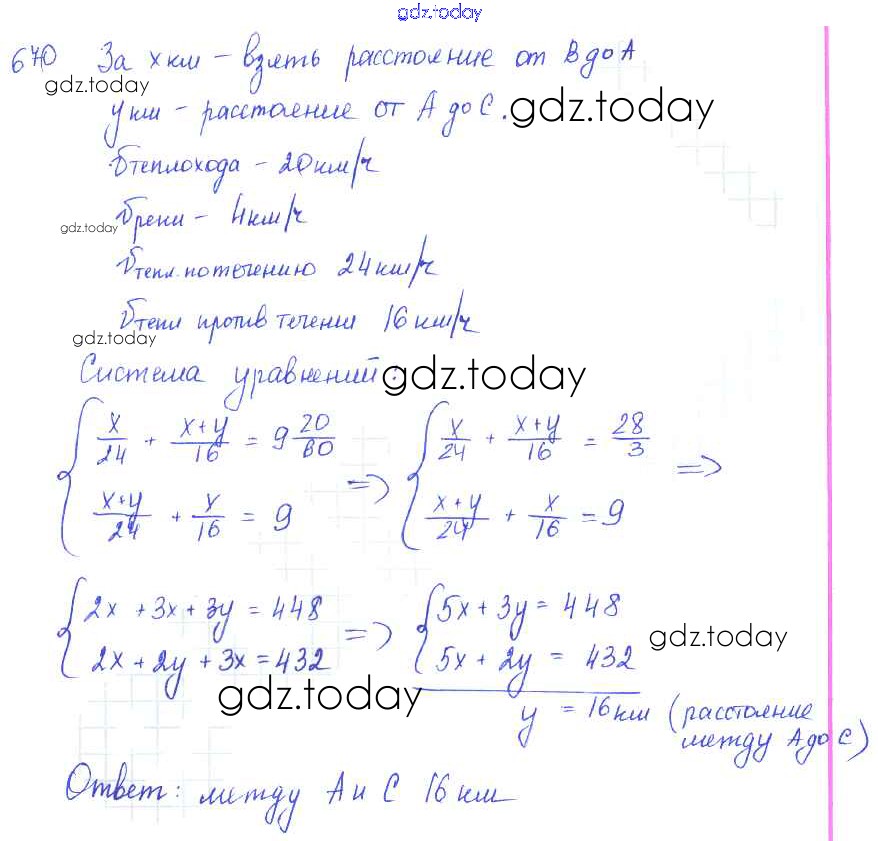 gdz.today
670 За x км – взять расстояние от B до A
gdz.today
y км – расстояние от A до C. gdz.today
Vтеплохода – 20 км/ч
gdz.today Vреки – 4 км/ч
Vтепл. по течению 24 км/ч
Vтепл против течения 16 км/ч
gdz.today
Система уравнений: gdz.today
{ x/24 + (x+y)/16 = 9 20/60 => { x/24 + (x+y)/16 = 28/3 =>
{ (x+y)/24 + x/16 = 9 { (x+y)/24 + x/16 = 9
{ 2x + 3x + 3y = 448 => { 5x + 3y = 448
{ 2x + 2y + 3x = 432 { 5x + 2y = 432 gdz.today
gdz.today
y = 16 км (расстояние
между A до C)
Ответ: между A и C 16 км